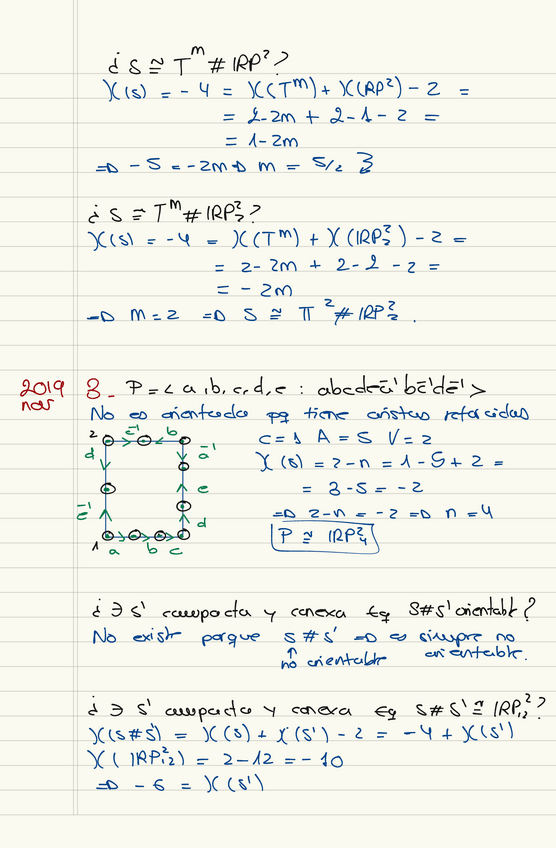 ¿ S ≅ T^m # IRP² ?
χ(S) = -4 = χ(T^m) + χ(RP²) - 2 =
= 2-2m + 2-1-2 =
= 1-2m
⇒ -5 = -2m ⇒ m = 5/2 ∄
¿ S ≅ T^m # IRP²₂ ?
χ(S) = -4 = χ(T^m) + χ(IRP²₂) - 2 =
= 2-2m + 2-2-2 =
= -2m
⇒ m = 2 ⇒ S ≅ T² # IRP²₂ .
2019 nov
3- P = < a, b, c, d, e : abcdea⁻¹bc⁻¹de⁻¹ >
No es orientada pq tiene aristas retorcidas
2 c⁻¹ b
d a⁻¹
e
e⁻¹ d
1 a b c
C = 1 A = 5 V = 2
χ(S) = 2-n = 1-5+2 =
= 3-5 = -2
⇒ 2-n = -2 ⇒ n = 4
P ≅ IRP²₄
¿ ∃ S' compacta y conexa tq S#S' orientable ?
No existe porque S # S' ⇒ es siempre no orientable.
↑
no orientable
¿ ∃ S' compacta y conexa tq S # S' ≅ IRP²₁₂ ?
χ(S#S') = χ(S) + χ(S') - 2 = -4 + χ(S')
χ(IRP²₁₂) = 2-12 = -10
⇒ -6 = χ(S')